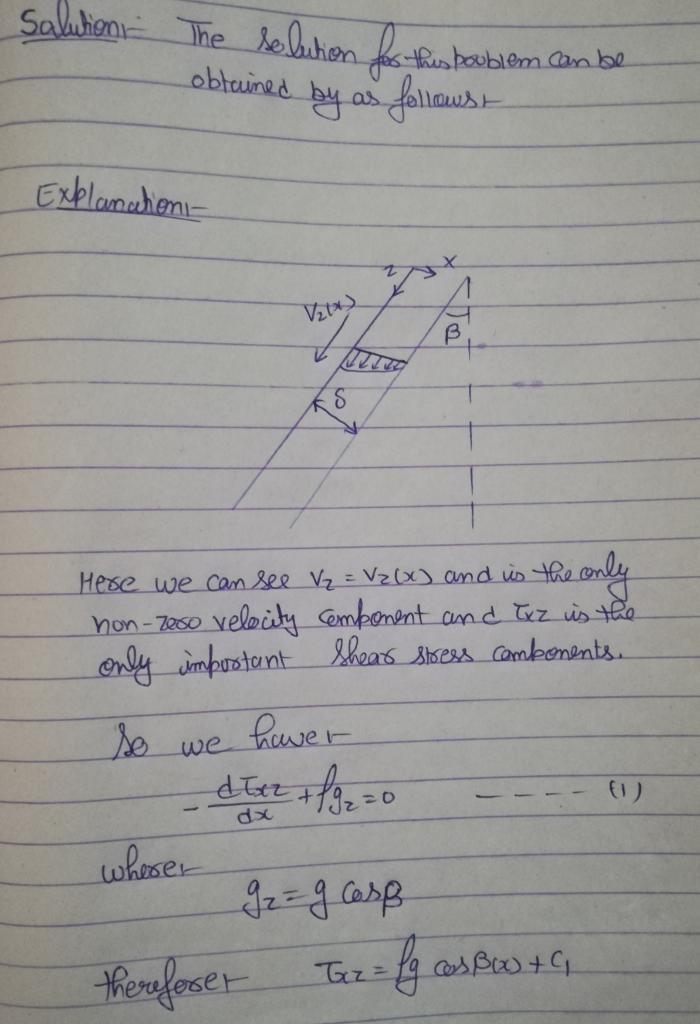 Solution:- The solution for this problem can be
obtained by as follows:-
Explanation:-
z x
Vz(x)
β
δ
Here we can see Vz = Vz(x) and is the only
non-zero velocity component and τxz is the
only important shear stress components.
So we have:-
- dτxz/dx + ρgz = 0 ---- (1)
where:-
gz = g cosβ
therefore:- τxz = ρg cosβ(x) + C1